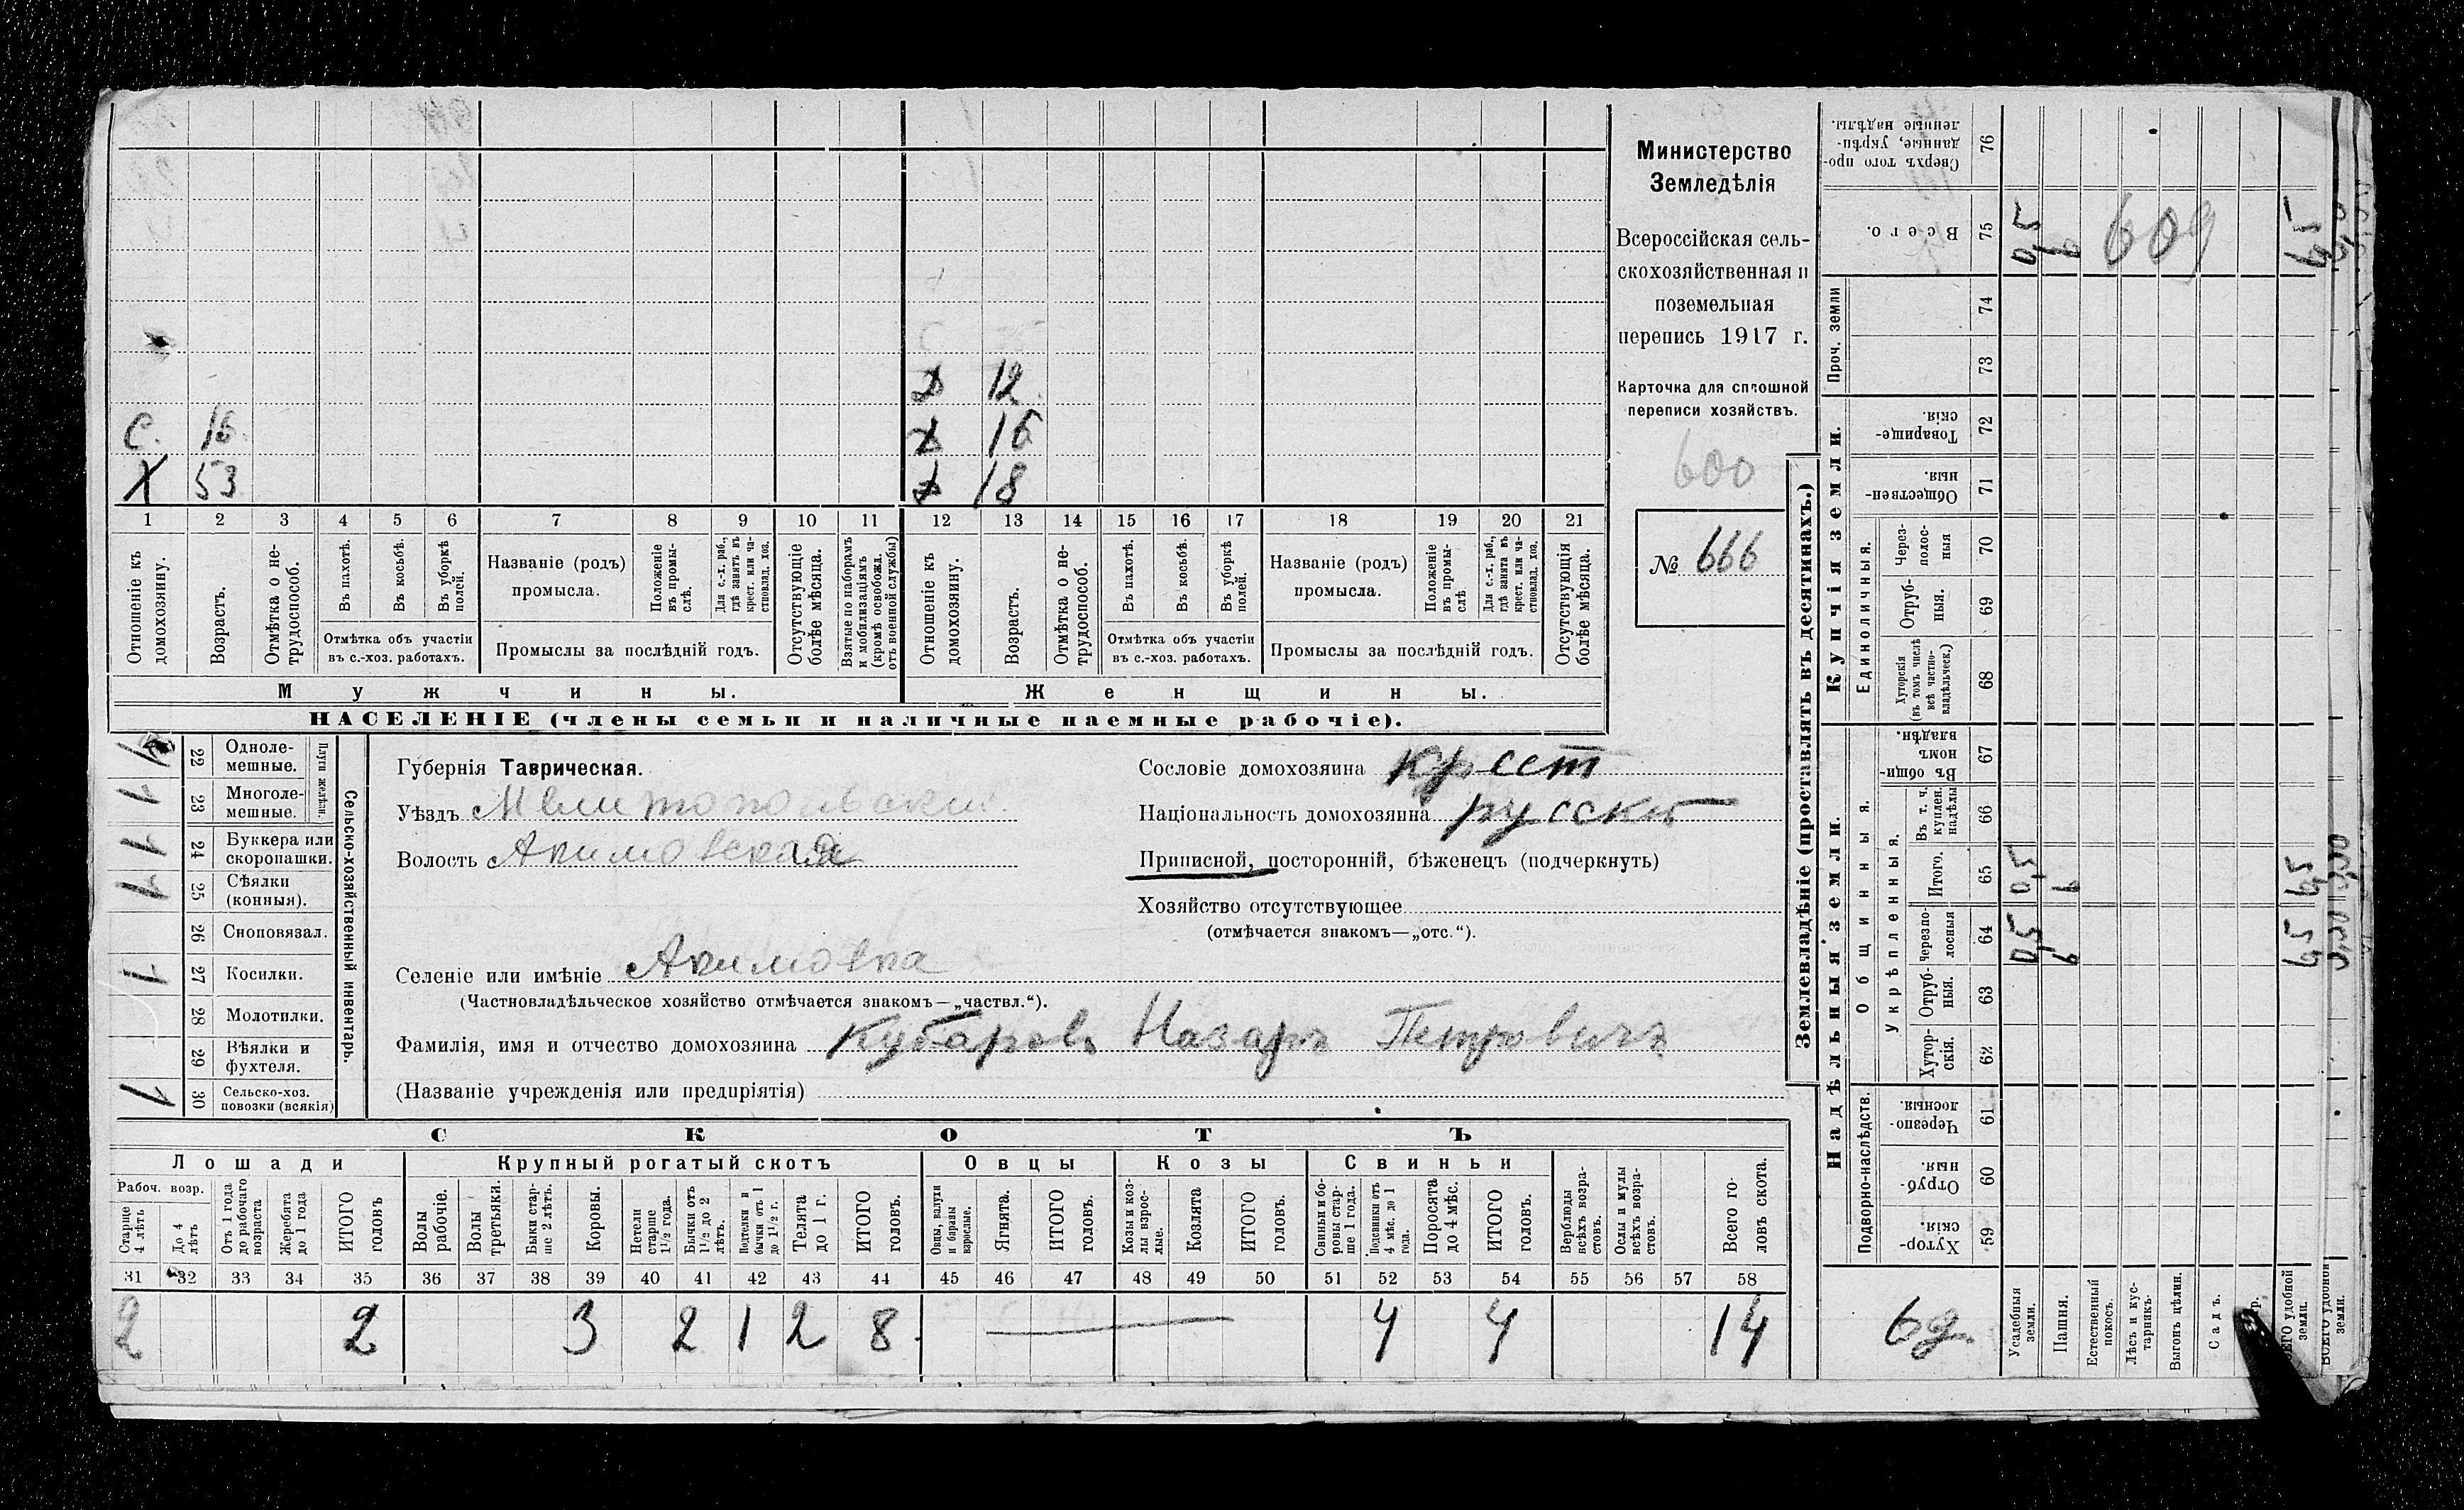 Министерство
Земледѣлія
Всероссійская сель-
скохозяйственная и
поземельная
перепись 1917 г.
Карточка для сплошной
переписи хозяйствъ.
600
№ 666
Д 12
С. 16 Д 16
Х 53 Д 18
1 2 3 4 5 6 7 8 9 10 11 12 13 14 15 16 17 18 19 20 21
Отношеніе къ домохозяину.
Возрастъ.
Отмѣтка о не-трудоспособ.
Въ пахотѣ.
Въ косьбѣ.
Въ уборкѣ полей.
Отмѣтка объ участіи
въ с.-хоз. работахъ.
Названіе (родъ)
промысла.
Положеніе въ промы-слѣ.
Для с.-х. раб., гдѣ занятъ въ крест. или ча-стновлад. хоз.
Промыслы за послѣдній годъ.
Отсутствующіе болѣе мѣсяца.
Взятые по наборамъ и мобилизаціямъ (кромѣ освобожд. отъ военной службы)
Отношеніе къ домохозяину.
Возрастъ.
Отмѣтка о не-трудоспособ.
Въ пахотѣ.
Въ косьбѣ.
Въ уборкѣ полей.
Отмѣтка объ участіи
въ с.-хоз. работахъ.
Названіе (родъ)
промысла.
Положеніе въ промы-слѣ
Для с.-х. раб., гдѣ занята въ крест. или ча-стновлад. хоз.
Промыслы за послѣдній годъ.
Отсутствующія болѣе мѣсяца.
Мужчины. Женщины.
НАСЕЛЕНІЕ (члены семьи и наличные наемные рабочіе).
Сельско-хозяйственный инвентарь.
Плуги желѣзн.
22 Одноле-мешные.
1 23 Многоле-мешные.
1 1 24 Буккера или скоропашки.
1 25 Сѣялки (конныя).
26 Сноповязал.
1 27 Косилки.
28 Молотилки.
29 Вѣялки и фухтеля.
1 30 Сельско-хоз. повозки (всякія)
Губернія Таврическая.
Уѣздъ Мелитопольскій
Волость Акимовская
Селеніе или имѣніе Акимовка
(Частновладѣльческое хозяйство отмѣчается знакомъ—„частвл.“).
Фамилія, имя и отчество домохозяина Кубаровъ Назаръ Петровичъ
(Названіе учрежденія или предпріятія)
Сословіе домохозяина крест
Національность домохозяина русскій
Приписной, посторонній, бѣженецъ (подчеркнуть)
Хозяйство отсутствующее
(отмѣчается знакомъ—„отс.“).
СКОТЪ
Лошади Крупный рогатый скотъ Овцы Козы Свиньи
Рабоч. возр.
Старше 4 лѣтъ
До 4 лѣтъ
Отъ 1 года до рабочаго возраста
Жеребята до 1 года
ИТОГО головъ
Волы рабочіе.
Волы третьяки.
Быки стар-ше 2 лѣтъ.
Коровы.
Нетели старше 1½ года.
Бычки отъ 1½ до 2 лѣтъ.
Подтелки и бычки отъ 1 до 1½ г.
Телята до 1 г.
ИТОГО головъ.
Овцы, валухи и бараны взрослые.
Ягнята.
ИТОГО головъ.
Козы и коз-лы взрос-лые.
Козлята
ИТОГО головъ.
Свиньи и бо-ровы стар-ше 1 года.
Подсвинки отъ 4 мѣс. до 1 года.
Поросята до 4 мѣс.
ИТОГО головъ.
Верблюды всѣхъ возра-стовъ.
Ослы и мулы всѣхъ возра-стовъ.
Всего го-ловъ скота.
31 32 33 34 35 36 37 38 39 40 41 42 43 44 45 46 47 48 49 50 51 52 53 54 55 56 57 58
2 2 3 2 1 2 8 4 4 14
Землевладѣніе (проставлять въ десятинахъ.)
Надѣльныя земли. Купчія земли.
Подворно-наслѣдств.
Общинныя.
Укрѣпленныя.
Единоличныя.
Проч. земли
Хутор-скія. 59
Отруб-ныя. 60
Черезпо-лосныя. 61
Хутор-скія. 62
Отруб-ныя. 63
Черезпо-лосныя 64 0,5 6 6,5
Итого. 65 0,5 6 6,5
Въ т. ч. куплен. надѣлы 66
Въ общин-номъ владѣн. 67
Хуторскія (въ томъ числѣ всѣ частно-владѣльческ.) 68
Отруб-ныя. 69
Через-полос-ныя 70
Обществен-ныя. 71
Товарище-скія. 72
73
74
Всего. 75 0,5 6 609 6,5
Сверхъ того про-данные, укрѣп-ленные надѣлы. 76
6д.
Усадебныя земли.
Пашня.
Естественный покосъ.
Лѣсъ и кус-тарникъ.
Выгонъ цѣлин.
Садъ.
ВСЕГО удобной земли.